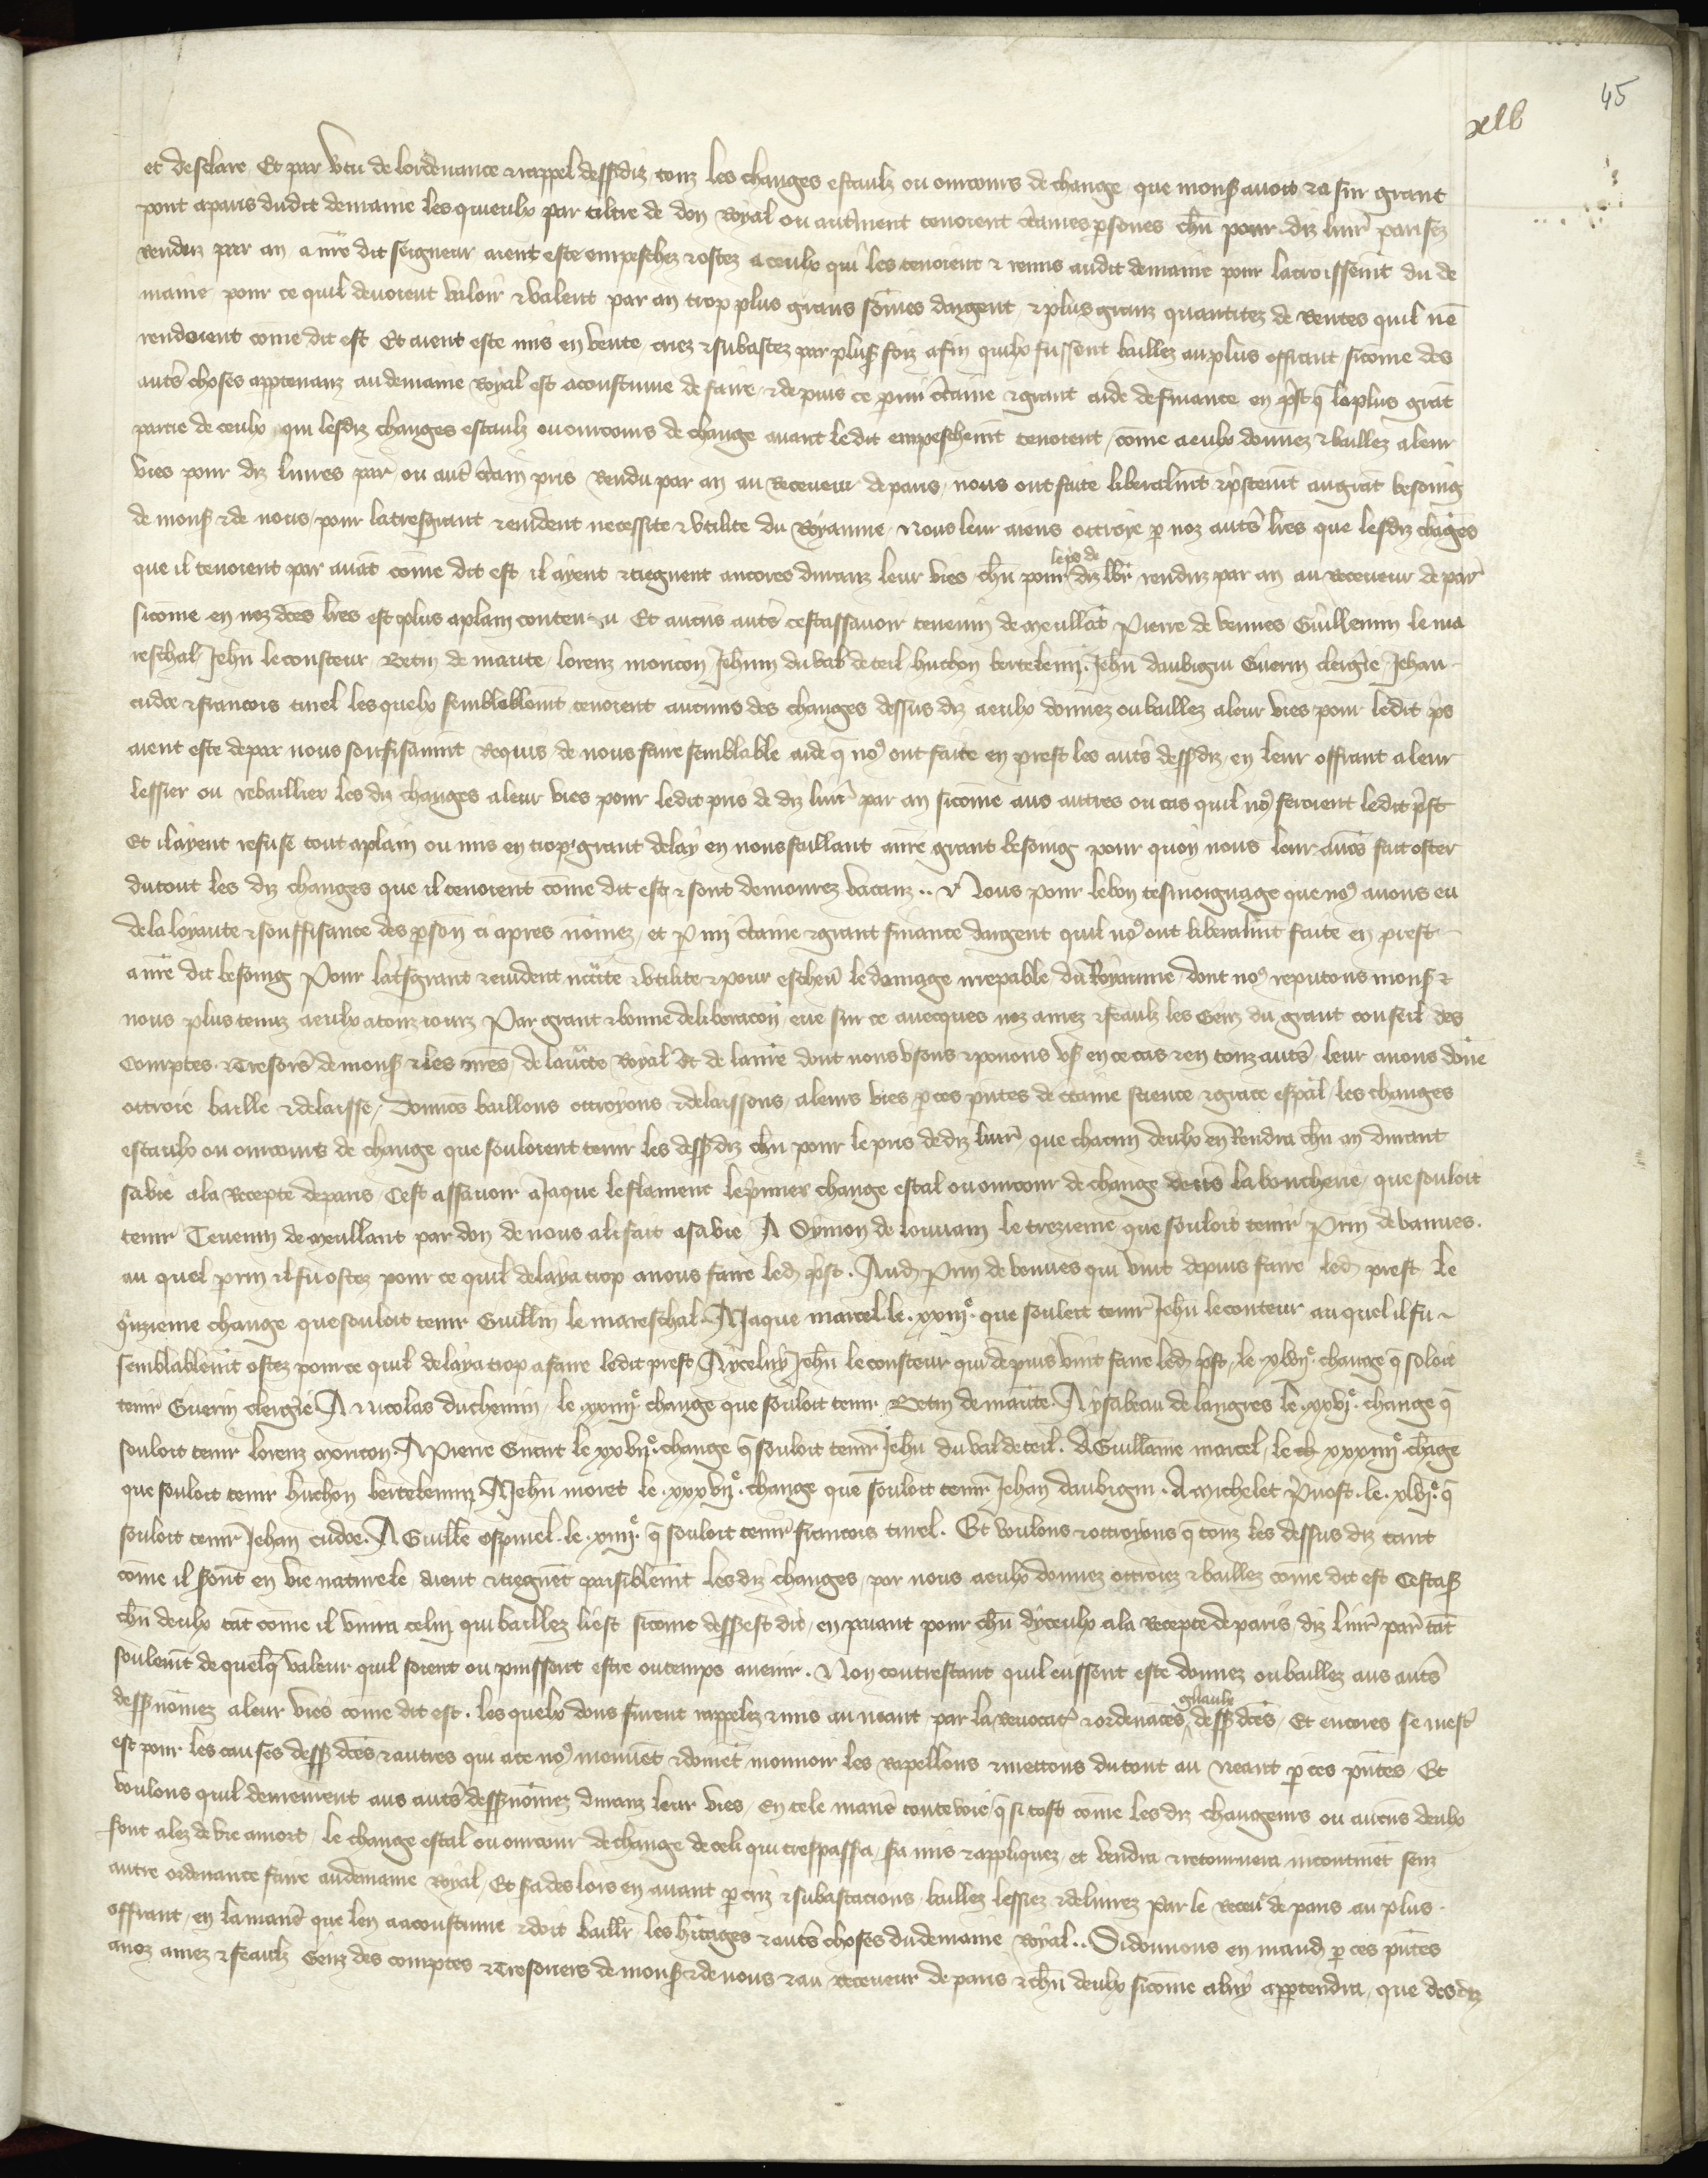 45
xlv
et desclare Et par vtu de lordenance & rappel dessdiz touz les changes estaulz ou ouurouers de change que mons auoit & a sur grant
pont a paris dudit demaine les quieulx par tiltre de don Royal ou autrment tenoient ctaines psones chun pour diz liur parisez
renduz par an a nre dit seigneur aient este empeschez & ostez a ceulx qui les tenoient & remis audit demaine pour lacroissemt du de
maine pour ce quil deuoient valoir & valent par an trop plus grans somes dargent & plus granz quantitez de Rentes quil nen
rendoient come dit est Et aient este mis en vente criez & subastez par plus foiz afin quilx fussent baillez au plus offrant sicome des
autrs choses apptenanz au demaine Royal est acoustume de faire & depuis ce parmi ctaine & grant aide de finance en prest q la plus grat
partie de ceulx qui lesdiz changes estaulz ou ouurouers de change auant ledit empeschemt tenoient come a eulx donnez & baillez a leur
vies pour diz liures par ou autr ctain pris Rendu par an au Receueur de paris nous ont faite liberalmt & prstemt au grat besoing
de mons & de nous pour la tresgrant & euident necessite & vtilite du Royaume Nous leur aions ottroie p noz autrs lres que lesdiz chages
que il tenoient par auat come dit est il ayent & tiegnent ancores duranz leur vies chun pour le pris de diz lbr renduz par an au Receueur de par
sicome en noz dces lres est plus aplain contenu Et aucuns autrs cestassauoir teuenin de meullat Pierre de vennes Guillemin le ma
reschal Jehn le cousteur Betin de mante lorenz moricon Jehnin du val de teil huchon bertelemi Jehn daubigni Guerin clergie Jehan
cudoe & francois tinel les quelx semblablemt tenoient aucuns des changes dessus diz a eulx donnez ou baillez a leur vies pour ledit prs
aient este depar nous souffisamt Requis de nous faire semblable aide q no9 ont faite en prest les autrs dessdiz en leur offrant a leur
lessier ou rebaillier les diz changes a leur vies pour ledit pris de diz liur par an sicome aus autres ou cas quil no9 feroient ledit prst
Et il ayent refuse tout aplain ou mis en trop grant delay en nous faillant a nre grant besoing pour quoy nous leur auos fait oster
du tout les diz changes que il tenoient come dit est & sont demourez vacanz Nous pour le bon tesmoignage que no9 auons eu
de la loyaute & souffisance des pson ci apres nomez et pmi ctaine & grant finance dargent quil no9 ont liberalmt faite en prest
a nre dit besoing Pour la trsgrant & euident ncite & vtilite & pour escheur le domage irrepable du Royaume dont no9 reputons mons &
nous plus tenuz a eulx a touz iourz Par grant & bonne deliberacon eue sur ce auecques noz amez & feaulz les Genz du grant conseil des
Comptes & Tresors de mons & les nres de lauctte Royal Et de la nre dont nous vsons & pouons vs en ce cas & en touz autrs leur auons done
ottroie baille & delaisse donnos baillons ottroyons & delaissons a leurs vies p ces pntes de ctaine science & grace espal les changes
estaulx ou ouurouers de change que souloient tenir les dessdiz chun pour le pris de diz liur que chacun deulx en Rendra chun an durant
sa vie a la Recepte de paris Cest assauoir a Jaque le flament le pmier change estal ou ouurouer de change deurs la boucherie que souloit
tenir Teuenin de meullant par don de nous a li fait a sa vie A Symon de louuain le trezieme que souloit tenir Prin de vannes
au quel perrin il fu ostez pour ce quil delaya trop a nous faire led prst Aud Prin de vennes qui vint depuis faire led prest le
qinzieme change que souloit tenir Guillm le mareschal A Jaque marcel le xxiii que souloit tenir Jehn le couteur au quel il fu
semblablemt ostez pour ce quil delaya trop a faire ledit prest A yceluy Jehn le cousteur qui depuis vint faire led prst le xlvii change q soloit
tenir Guerin clergie A nicolas duchemin le xxiiii change que souloit tenir Betin de mante A ysabeau de langres le xxvi change q
souloit tenir lorenz moricon A Pierre Guiart le xxvii change q souloit tenir Jehn du val de teil A Guillaume marcel le xxxiiii chage
que souloit tenir huchon bertelemi A Jehn moret le xxxvii change que souloit tenir Jehan daubigni A michelet Preuost le xlvi q
souloit tenir Jehan cudoe A Guille espinel le xiiii q souloit tenir francois tinel Et voulons & ottroyons q touz les dessus diz tant
come il seront en vie naturele aient & tiegnent paisiblemt les diz changes par nous a eulx donnez ottroiez & baillez come dit est Cestass
chun deulx tat come il viura celui qui baillez li est sicome dess est dit en paiant pour chun dyceulx a la Recepte de paris diz liur par tat
soulemt de quelq valeur quil soient ou puissent estre ou temps auenir Non contrestant quil eussent este donnez ou baillez aus autrs
dess nomez a leur vies come dit est les quelx dons furent rappelez & mis au neant par la Reuocato & ordenaces gnaulx dess dces Et encores se mestr
est pour les causes dess dces & autres qui a ce no9 mouuet & doiuet mouuoir les Rapellons & mettons du tout au neant p ces pntes Et
voulons quil demeurent aus autrs dess nomez duranz leur vies En tele manre touteuoie q si tost come les diz changeurs ou aucuns deulx
sont alez de vie a mort le change estal ou ouurouer de change de celi qui trespassera sra mis & appliquez et vendra & retournera incontinet senz
autre ordenance faire au demaine Royal Et sra des lors en auant p criz & subastacions baillez lessiez & deliurez par le Receur de paris au plus
offrant en la manre que len a acoustume & doit baillr les hitages & autrs choses du demaine Royal Si donnons en mand p ces pntes
a noz amez & feaulz Genz des comptes & Tresoriers de mons & de nous & au Receueur de paris & chun deulx sicome a luy apptendra que des diz